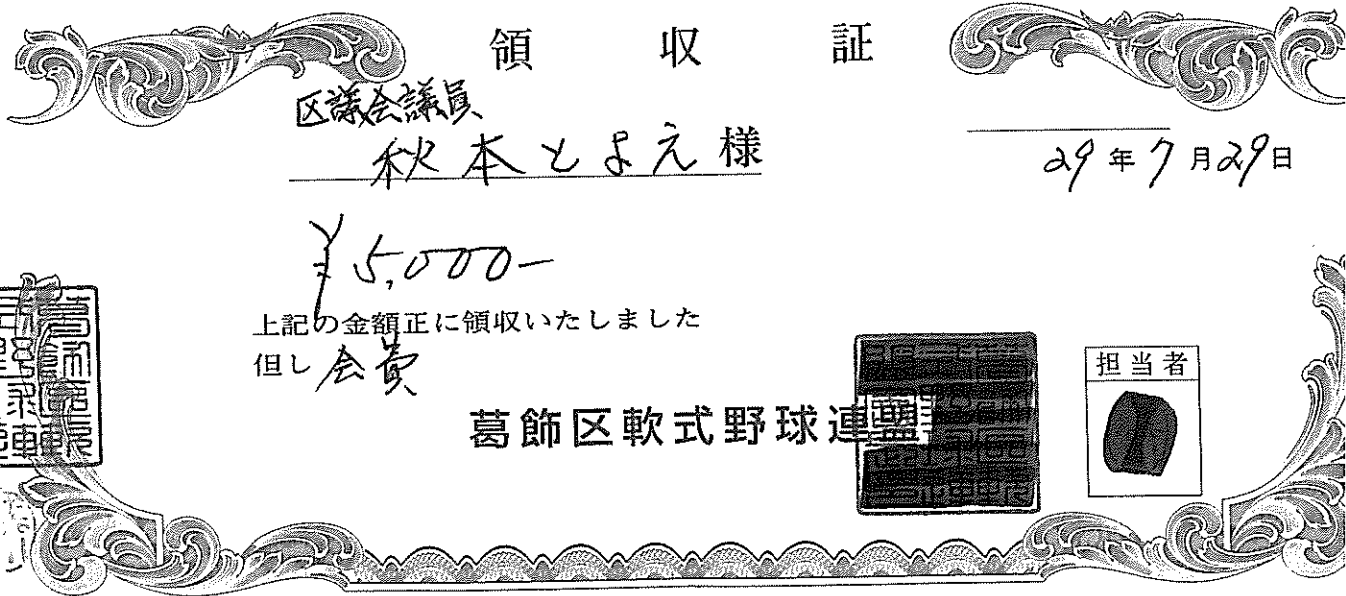 領収証
区議会議員
秋本とよえ様
29年7月29日
¥5,000-
上記の金額正に領収いたしました
但し会費
葛飾区軟式野球連盟
担当者